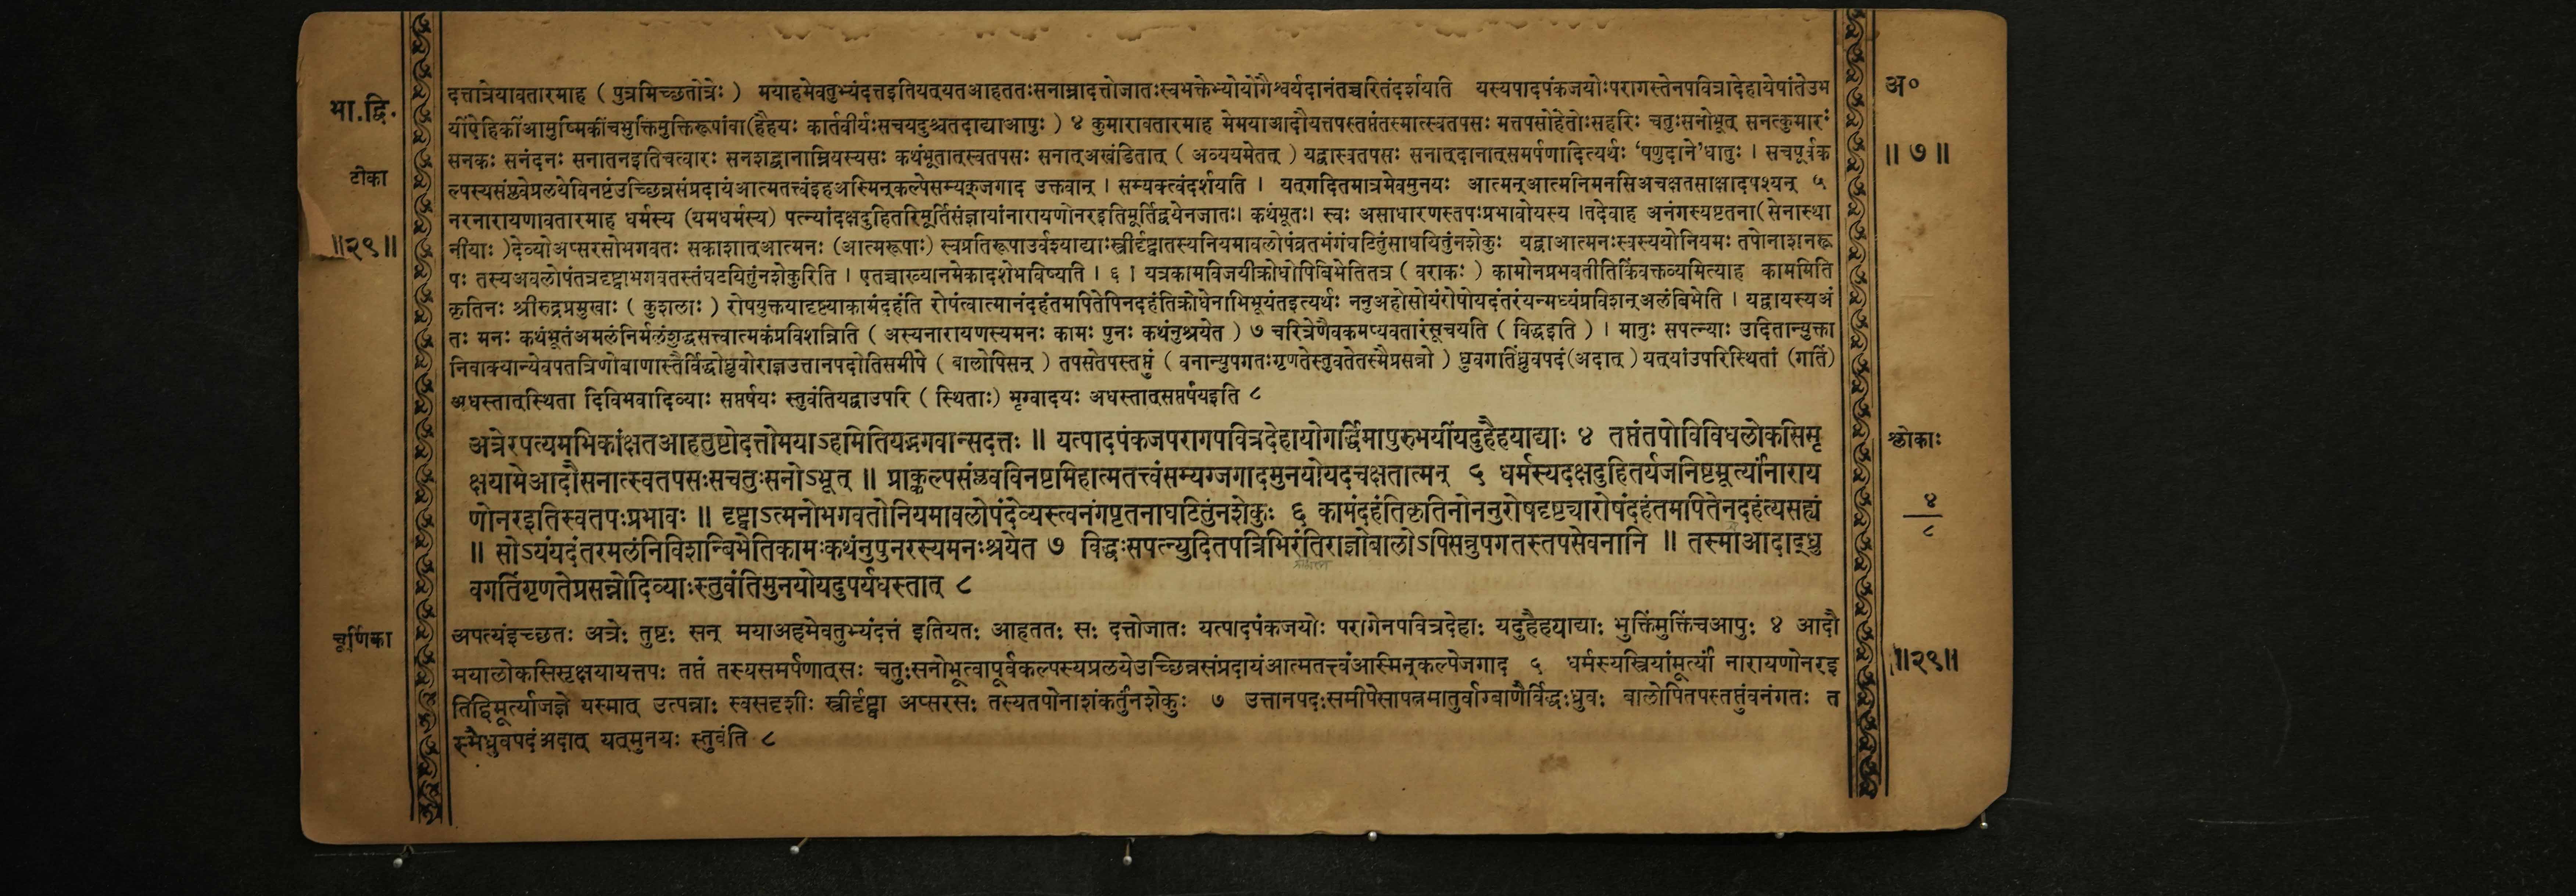 भा.द्वि.
टीका
॥२९॥
चूर्णिका
दत्तात्रेयावतारमाह ( पुत्रमिच्छतोत्रेः ) मयाहमेवतुभ्यंदत्तइतियत्यतआहततःसनाम्नादत्तोजातःस्वभक्तेभ्योयोगैश्वर्यदानंतच्चरितंदर्शयति यस्यपादपंकजयोःपरागस्तेनपवित्रादेहायेषांतेउभ
यींऐहिकींआमुष्मिकींचभुक्तिमुक्तिरूपांवा(हैहयः कार्तवीर्यःसचयदुश्चतदाद्याआपुः ) ४ कुमारावतारमाह मेमयाआदौयत्तपस्तप्तंतस्मात्स्वतपसः मत्तपसोहेतोःसहरिः चतुःसनोभूत् सनत्कुमारः
सनकः सनंदनः सनातनइतिचत्वारः सनशब्दानाम्नियस्यसः कथंभूतात्स्वतपसः सनात्अखंडितात् ( अव्ययमेतत् ) यद्वास्वतपसः सनात्दानात्समर्पणादित्यर्थः ‘षणुदाने’धातुः । सचपूर्वक
ल्पस्यसंप्लवेप्रलयेविनष्टंउच्छिन्नसंप्रदायंआत्मतत्त्वंइहअस्मिन्कल्पेसम्यक्जगाद उक्तवान् । सम्यक्त्वंदर्शयति । यत्गदितमात्रमेवमुनयः आत्मन्आत्मनिमनसिअचक्षतसाक्षादपश्यन् ५
नरनारायणावतारमाह धर्मस्य (यमधर्मस्य) पत्न्यांदक्षदुहितरिमूर्तिसंज्ञायांनारायणोनरइतिमूर्तिद्वयेनजातः। कथंभूतः। स्वः असाधारणस्तपःप्रभावोयस्य ।तदेवाह अनंगस्यष्टतना(सेनास्था
नीयाः )देव्योअप्सरसोभगवतः सकाशात्आत्मनः (आत्मरूपाः) स्वप्रतिरूपाउर्वश्याद्याःस्त्रीर्दृष्ट्वातस्यनियमावलोपंव्रतभंगंघटितुंसाधयितुंनशेकुः यद्वाआत्मनःस्वस्ययोनियमः तपोनाशनरू
पः तस्यअवलोपंतत्रदृष्ट्वाभगवतस्तंघटयितुंनशेकुरिति । एतच्चाख्यानमेकादशेभविष्यति । ६ । यत्रकामविजयीक्रोधोपिबिभेतितत्र ( वराकः ) कामोनप्रभवतीतिकिंवक्तव्यमित्याह काममिति
कृतिनः श्रीरुद्रप्रमुखाः ( कुशलाः ) रोषयुक्तयादृष्ट्याकामंदहंति रोषंत्वात्मानंदहंतमपितेपिनदहंतिक्रोधेनाभिभूयंतइत्यर्थः ननुअहोसोयंरोषोयदंतरंयन्मध्यंप्रविशन्अलंबिभेति । यद्वायस्यअं
तः मनः कथंभूतंअमलंनिर्मलंशुद्धसत्त्वात्मकंप्रविशन्निति ( अस्यनारायणस्यमनः कामः पुनः कथंनुश्रयेत ) ७ चरित्रेणैवकमप्यवतारंसूचयति ( विद्धइति ) । मातुः सपत्न्याः उदितान्युक्ता
निवाक्यान्येवपतत्रिणोबाणास्तैर्विद्धोध्रुवोराज्ञउत्तानपदोतिसमीपे ( बालोपिसन् ) तपसेतपस्तप्तुं ( वनान्युपगतःगृणतेस्तुवतेतस्मैप्रसन्नो ) ध्रुवगतिंध्रुवपदं(अदात् ) यत्यांउपरिस्थितां (गतिं)
अधस्तात्स्थिता दिविभवादिव्याः सप्तर्षयः स्तुवंतियद्वाउपरि ( स्थिताः) भृग्वादयः अधस्तात्सप्तर्षयइति ८
अत्रेरपत्यमभिकांक्षतआहतुष्टोदत्तोमयाऽहमितियद्भगवान्सदत्तः ॥ यत्पादपंकजपरागपवित्रदेहायोगर्द्धिमापुरुभयींयदुहैहयाद्याः ४ तप्तंतपोविविधलोकसिसृ
क्षयामेआदौसनात्स्वतपसःसचतुःसनोऽभूत् ॥ प्राक्कल्पसंप्लवविनष्टमिहात्मतत्त्वंसम्यग्जगादमुनयोयदचक्षतात्मन् ५ धर्मस्यदक्षदुहितर्यजनिष्टमूर्त्यांनाराय
णोनरइतिस्वतपःप्रभावः ॥ दृष्ट्वाऽत्मनोभगवतोनियमावलोपंदेव्यस्त्वनंगपृतनाघटितुंनशेकुः ६ कामंदहंतिकृतिनोननुरोषदृष्ट्यारोषंदहंतमपितेनदहंत्यसह्यं
॥ सोऽयंयदंतरमलंनिविशन्बिभेतिकामःकथंनुपुनरस्यमनःश्रयेत ७ विद्धःसपत्न्युदितपत्रिभिरंतिराज्ञोबालोऽपिसन्नुपगतस्तपसेवनानि ॥ तस्माआदाद्ध्रु
वगतिंगृणतेप्रसन्नोदिव्याःस्तुवंतिमुनयोयदुपर्यधस्तात् ८
अपत्यंइच्छतः अत्रेः तुष्टः सन् मयाअहमेवतुभ्यंदत्तं इतियतः आहततः सः दत्तोजातः यत्पादपंकजयोः परागेनपवित्रदेहाः यदुहैहयाद्याः भुक्तिंमुक्तिंचआपुः ४ आदौ
मयालोकसिसृक्षयायत्तपः तप्तं तस्यसमर्पणात्सः चतुःसनोभूत्वापूर्वकल्पस्यप्रलयेउच्छिन्नसंप्रदायंआत्मतत्त्वंआस्मिन्कल्पेजगाद ५ धर्मस्यस्त्रियांमूर्त्यां नारायणोनरइ
तिद्विमूर्त्याजज्ञे यस्मात् उत्पन्नाः स्वसदृशीः स्त्रीर्दृष्ट्वा अप्सरसः तस्यतपोनाशंकर्तुंनशेकुः ७ उत्तानपदःसमीपेसापत्नमातुर्वाग्बाणैर्विद्धःध्रुवः बालोपितपस्तप्तुंवनंगतः त
स्मैध्रुवपदंअदात् यत्मुनयः स्तुवंति ८
अ०
॥ ७ ॥
श्लोकाः
४
८
॥२९॥